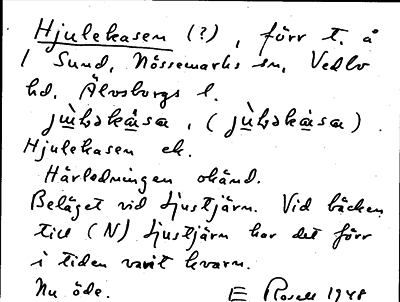 Hjulekasen (?), förr t. å
1 Sund, Nössemarks sn, Vedbo
hd, Älvsborgs l.
jùləkàsa, (jùləkàsa)
Hjulekasen ek.
Härledningen okänd.
Beläget vid Ljustjärn. Vid bäcken
till (N) Ljustjärn har det förr
i tiden varit kvarn.
Nu öde. E Rosell 1948